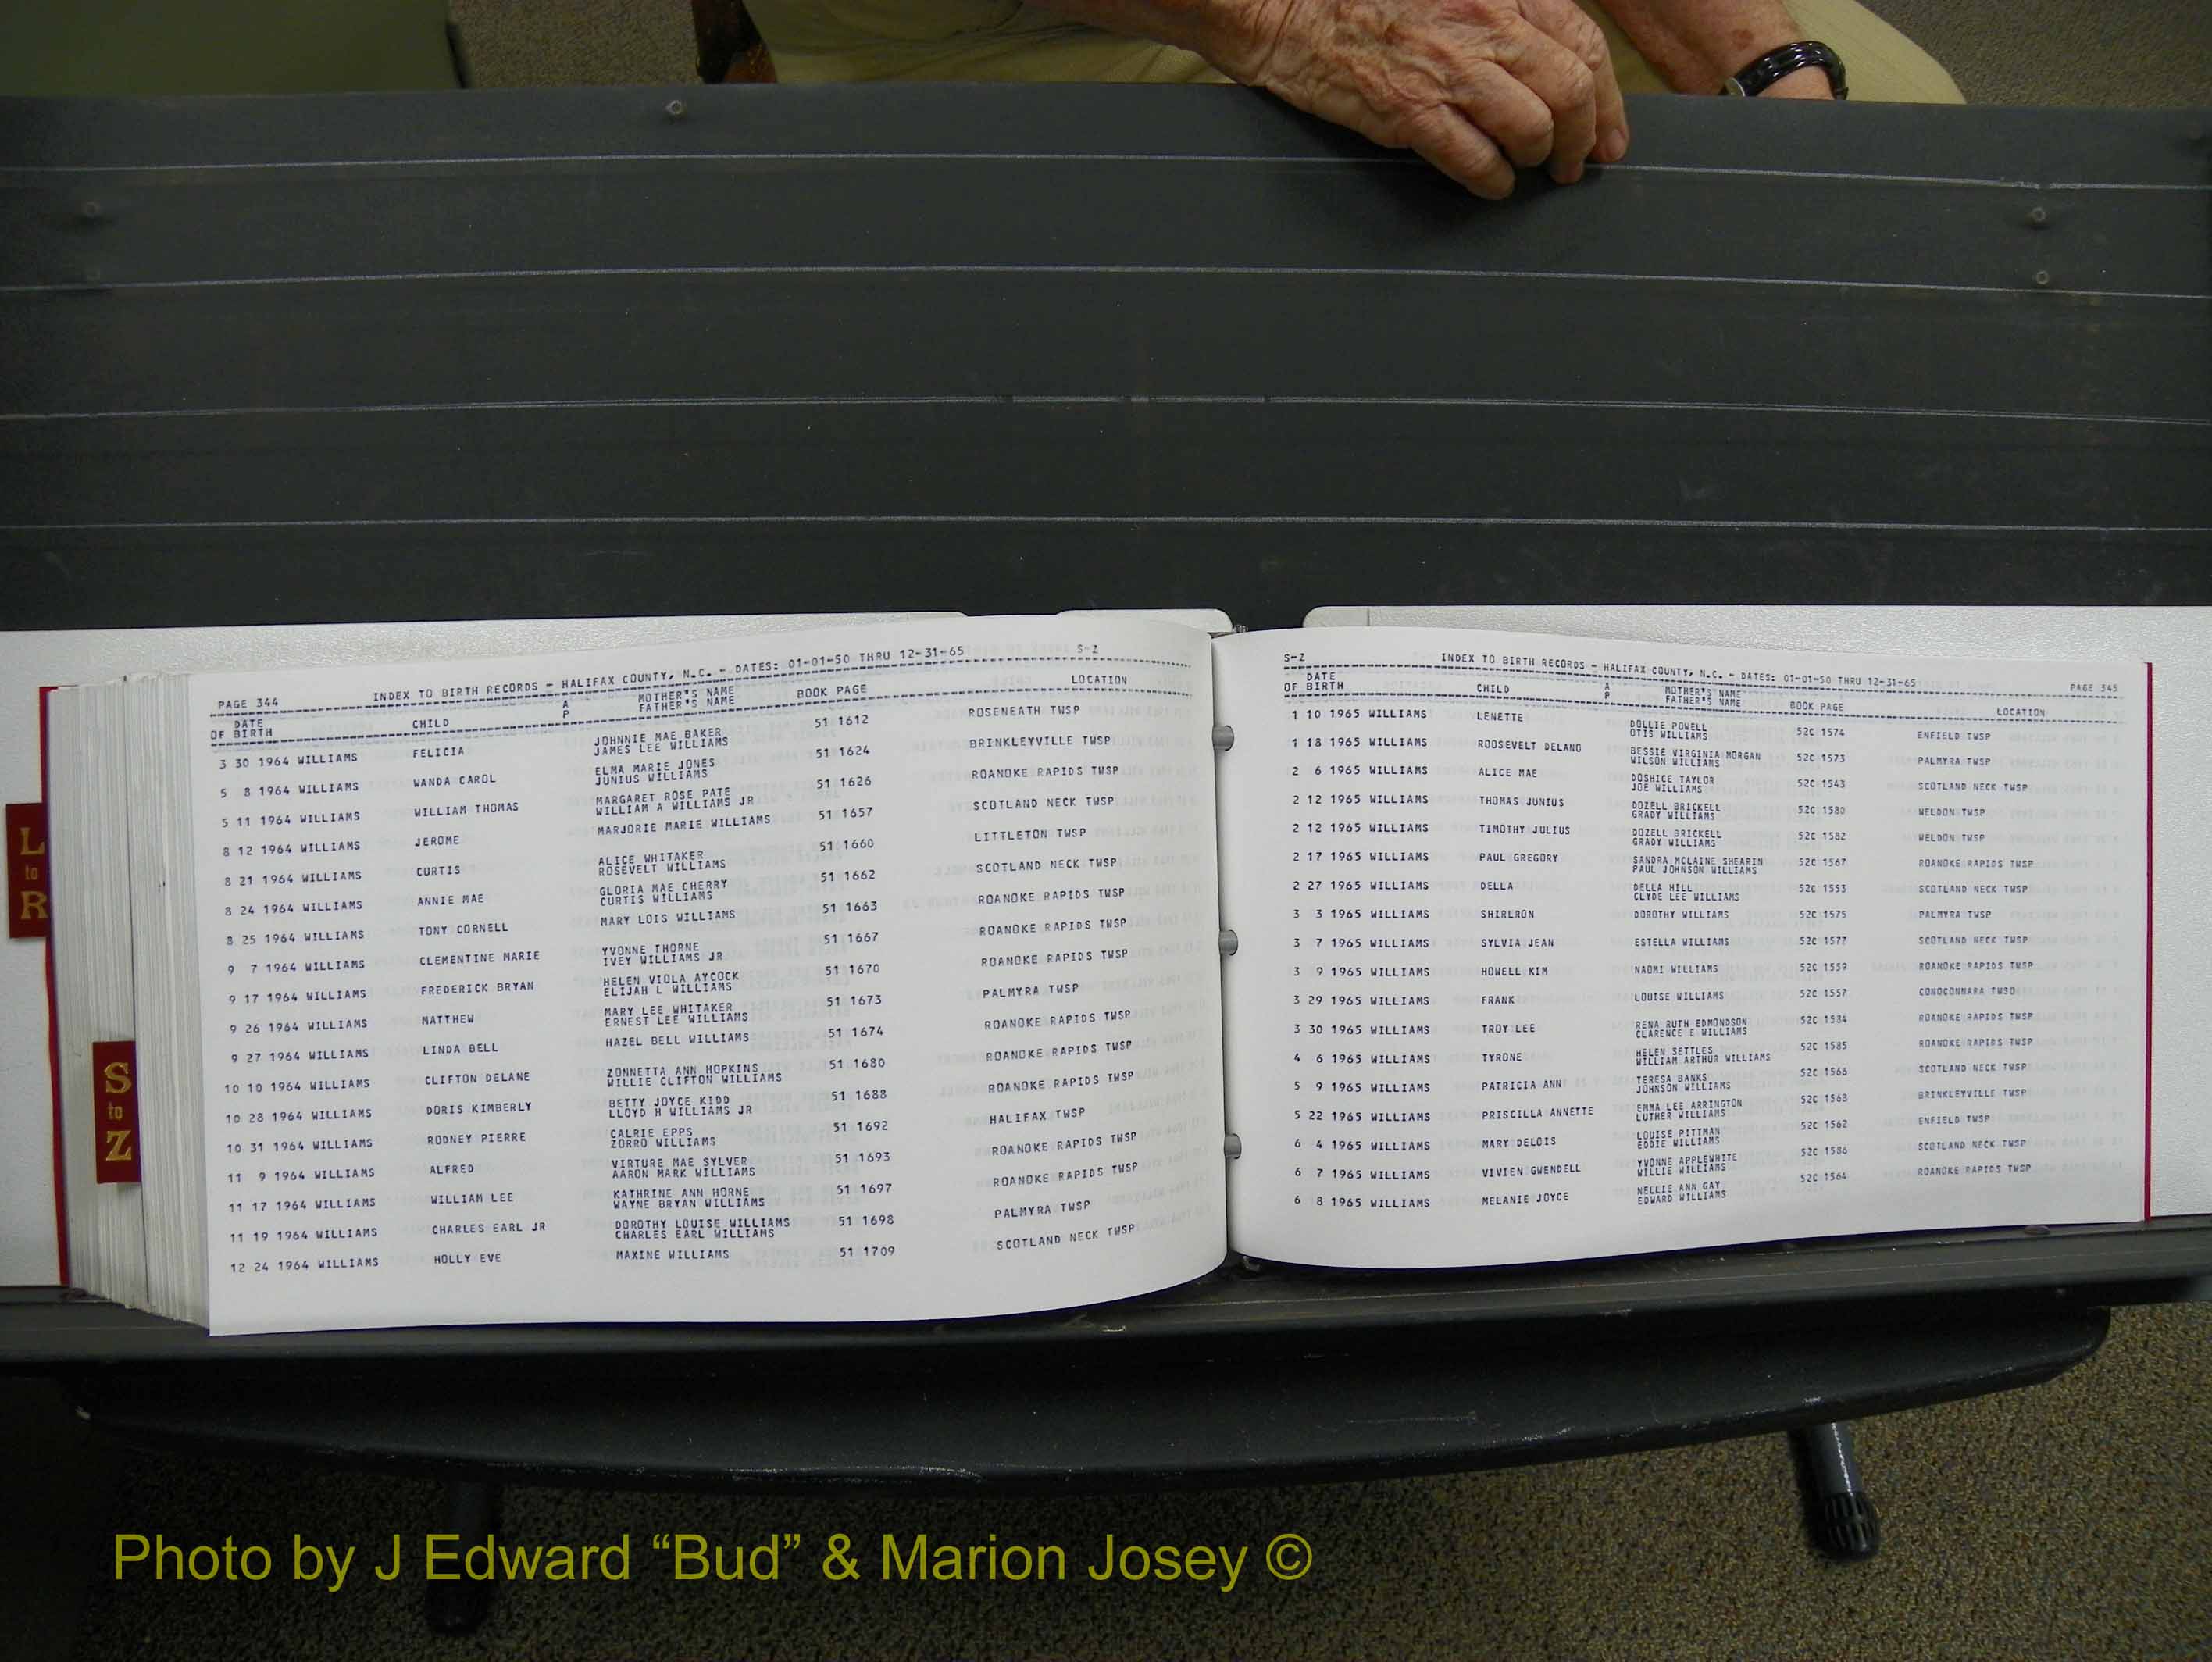 L
to
R
S
to
Z
PAGE 344 INDEX TO BIRTH RECORDS - HALIFAX COUNTY, N.C. - DATES: 01-01-50 THRU 12-31-65 S-Z
DATE OF BIRTH CHILD A P MOTHER'S NAME FATHER'S NAME BOOK PAGE LOCATION
3 30 1964 WILLIAMS FELICIA JOHNNIE MAE BAKER 51 1612 ROSENEATH TWSP
JAMES LEE WILLIAMS
5 8 1964 WILLIAMS WANDA CAROL ELMA MARIE JONES 51 1624 BRINKLEYVILLE TWSP
JUNIUS WILLIAMS
5 11 1964 WILLIAMS WILLIAM THOMAS MARGARET ROSE PATE 51 1626 ROANOKE RAPIDS TWSP
WILLIAM A WILLIAMS JR
8 12 1964 WILLIAMS JEROME MARJORIE MARIE WILLIAMS 51 1657 SCOTLAND NECK TWSP
8 21 1964 WILLIAMS CURTIS ALICE WHITAKER 51 1660 LITTLETON TWSP
ROSEVELT WILLIAMS
8 24 1964 WILLIAMS ANNIE MAE GLORIA MAE CHERRY 51 1662 SCOTLAND NECK TWSP
CURTIS WILLIAMS
8 25 1964 WILLIAMS TONY CORNELL MARY LOIS WILLIAMS 51 1663 ROANOKE RAPIDS TWSP
9 7 1964 WILLIAMS CLEMENTINE MARIE YVONNE THORNE 51 1667 ROANOKE RAPIDS TWSP
IVEY WILLIAMS JR
9 17 1964 WILLIAMS FREDERICK BRYAN HELEN VIOLA AYCOCK 51 1670 ROANOKE RAPIDS TWSP
ELIJAH L WILLIAMS
9 26 1964 WILLIAMS MATTHEW MARY LEE WHITAKER 51 1673 PALMYRA TWSP
ERNEST LEE WILLIAMS
9 27 1964 WILLIAMS LINDA BELL HAZEL BELL WILLIAMS 51 1674 ROANOKE RAPIDS TWSP
10 10 1964 WILLIAMS CLIFTON DELANE ZONNETTA ANN HOPKINS 51 1680 ROANOKE RAPIDS TWSP
WILLIE CLIFTON WILLIAMS
10 28 1964 WILLIAMS DORIS KIMBERLY BETTY JOYCE KIDD 51 1688 ROANOKE RAPIDS TWSP
LLOYD H WILLIAMS JR
10 31 1964 WILLIAMS RODNEY PIERRE CALRIE EPPS 51 1692 HALIFAX TWSP
ZORRO WILLIAMS
11 9 1964 WILLIAMS ALFRED VIRTURE MAE SYLVER 51 1693 ROANOKE RAPIDS TWSP
AARON MARK WILLIAMS
11 17 1964 WILLIAMS WILLIAM LEE KATHRINE ANN HORNE 51 1697 ROANOKE RAPIDS TWSP
WAYNE BRYAN WILLIAMS
11 19 1964 WILLIAMS CHARLES EARL JR DOROTHY LOUISE WILLIAMS 51 1698 PALMYRA TWSP
CHARLES EARL WILLIAMS
12 24 1964 WILLIAMS HOLLY EVE MAXINE WILLIAMS 51 1709 SCOTLAND NECK TWSP
S-Z INDEX TO BIRTH RECORDS - HALIFAX COUNTY, N.C. - DATES: 01-01-50 THRU 12-31-65 PAGE 345
DATE OF BIRTH CHILD A P MOTHER'S NAME FATHER'S NAME BOOK PAGE LOCATION
1 10 1965 WILLIAMS LENETTE DOLLIE POWELL 52C 1574 ENFIELD TWSP
OTIS WILLIAMS
1 18 1965 WILLIAMS ROOSEVELT DELANO BESSIE VIRGINIA MORGAN 52C 1573 PALMYRA TWSP
WILSON WILLIAMS
2 6 1965 WILLIAMS ALICE MAE DOSHICE TAYLOR 52C 1543 SCOTLAND NECK TWSP
JOE WILLIAMS
2 12 1965 WILLIAMS THOMAS JUNIUS DOZELL BRICKELL 52C 1580 WELDON TWSP
GRADY WILLIAMS
2 12 1965 WILLIAMS TIMOTHY JULIUS DOZELL BRICKELL 52C 1582 WELDON TWSP
GRADY WILLIAMS
2 17 1965 WILLIAMS PAUL GREGORY SANDRA MCLAINE SHEARIN 52C 1567 ROANOKE RAPIDS TWSP
PAUL JOHNSON WILLIAMS
2 27 1965 WILLIAMS DELLA DELLA HILL 52C 1553 SCOTLAND NECK TWSP
CLYDE LEE WILLIAMS
3 3 1965 WILLIAMS SHIRLRON DOROTHY WILLIAMS 52C 1575 PALMYRA TWSP
3 7 1965 WILLIAMS SYLVIA JEAN ESTELLA WILLIAMS 52C 1577 SCOTLAND NECK TWSP
3 9 1965 WILLIAMS HOWELL KIM NAOMI WILLIAMS 52C 1559 ROANOKE RAPIDS TWSP
3 29 1965 WILLIAMS FRANK LOUISE WILLIAMS 52C 1557 CONOCONNARA TWSD
3 30 1965 WILLIAMS TROY LEE RENA RUTH EDMONDSON 52C 1584 ROANOKE RAPIDS TWSP
CLARENCE E WILLIAMS
4 6 1965 WILLIAMS TYRONE HELEN SETTLES 52C 1585 ROANOKE RAPIDS TWSP
WILLIAM ARTHUR WILLIAMS
5 9 1965 WILLIAMS PATRICIA ANN TERESA BANKS 52C 1566 SCOTLAND NECK TWSP
JOHNSON WILLIAMS
5 22 1965 WILLIAMS PRISCILLA ANNETTE EMMA LEE ARRINGTON 52C 1568 BRINKLEYVILLE TWSP
LUTHER WILLIAMS
6 4 1965 WILLIAMS MARY DELOIS LOUISE PITTMAN 52C 1562 ENFIELD TWSP
EDDIE WILLIAMS
6 7 1965 WILLIAMS VIVIEN GWENDELL YVONNE APPLEWHITE 52C 1586 SCOTLAND NECK TWSP
WILLIE WILLIAMS
6 8 1965 WILLIAMS MELANIE JOYCE NELLIE ANN GAY 52C 1564 ROANOKE RAPIDS TWSP
EDWARD WILLIAMS
Photo by J Edward “Bud” & Marion Josey ©